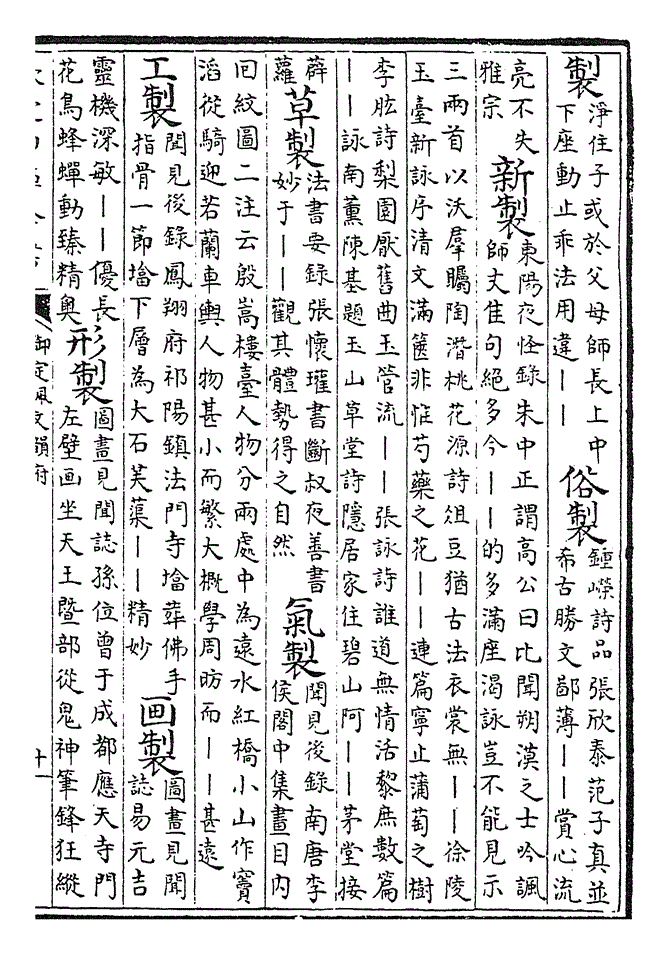 製
淨住子或於父母師長上中
下座動止乖法用違——
俗製
鍾嶸詩品張欣泰范子真並
希古勝文鄙薄——賞心流
亮不失
雅宗
新製
東陽夜怪錄朱中正謂高公曰比聞朔漠之士吟諷
師丈佳句絕多今——的多滿座渴詠豈不能見示
三兩首以沃羣矚陶潛桃花源詩俎豆猶古法衣裳無——徐陵
玉臺新詠序清文滿篋非惟芍藥之花——連篇寧止蒲萄之樹
李肱詩梨園厭舊曲玉管流——張詠詩誰道無情活黎庶數篇
——詠南薰陳基題玉山草堂詩隱居家住碧山阿——茅堂接
薜
蘿
草製
法書要錄張懷瓘書斷叔夜善書
妙于——觀其體勢得之自然
氣製
聞見後錄南唐李
侯閣中集畫目内
囘紋圖二注云殷嵩樓臺人物分兩處中為遠水紅橋小山作竇
滔從騎迎若蘭車輿人物甚小而繁大概學周昉而——甚遠
工製
聞見後錄鳳翔府祁陽鎮法門寺塔葬佛手
指骨一節塔下層為大石芙蕖——精妙
画製
圖畫見聞
誌易元吉
靈機深敏——優長
花鳥蜂蟬動臻精奥
形製
圖畫見聞誌孫位曾于成都應天寺門
左壁画坐天王暨部從鬼神筆鋒狂縱
御定佩文韻府
十一